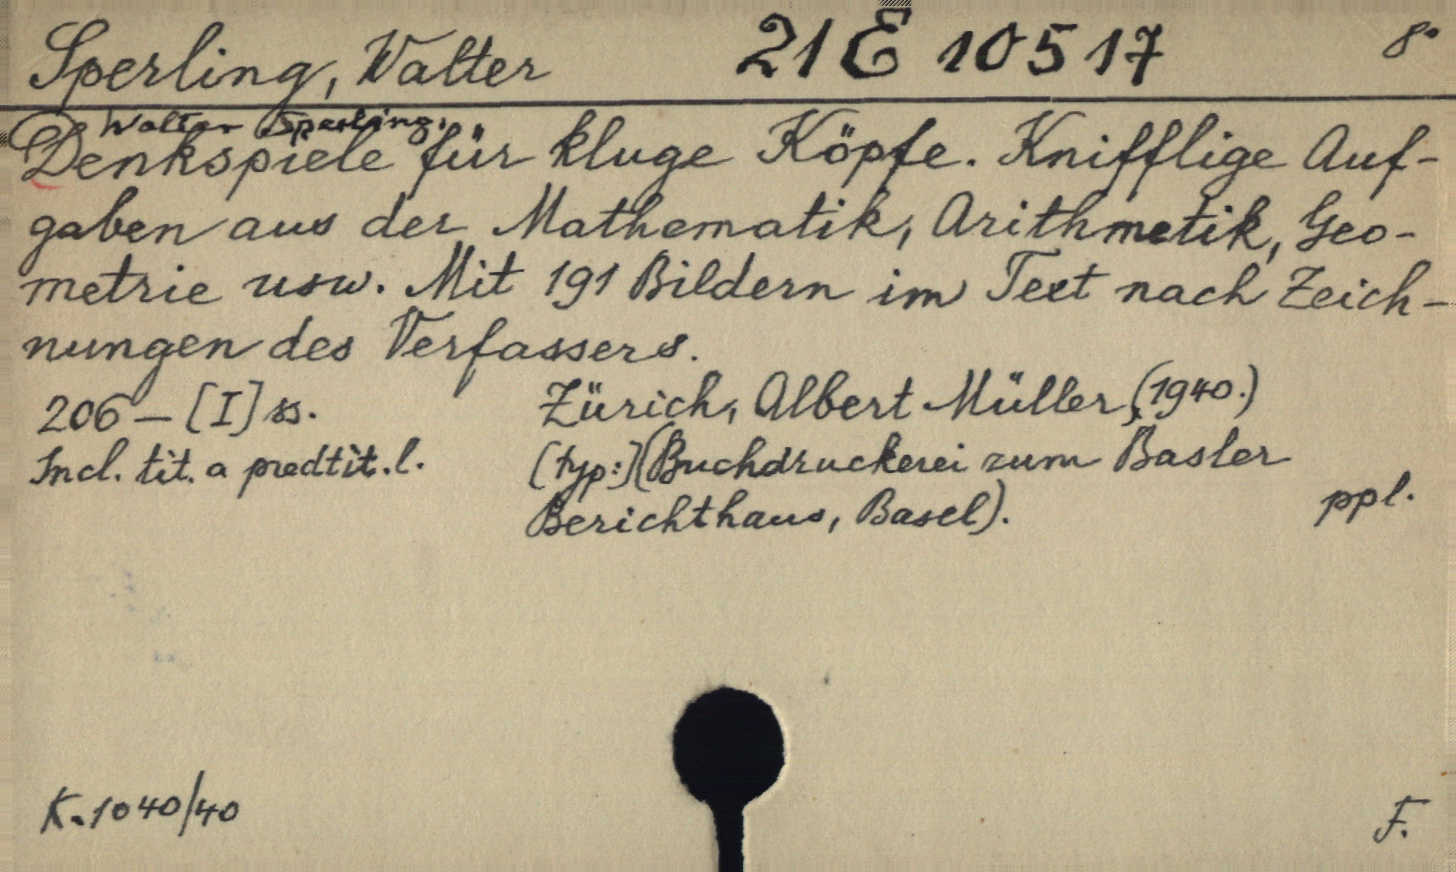 Sperling, Walter 21 E 10517 8°
Walter Sperling:
Denkspiele für kluge Köpfe. Knifflige Auf-
gaben aus der Mathematik, Arithmetik, Geo-
metrie usw. Mit 191 Bildern im Text nach Zeich-
nungen des Verfassers.
206 – [I] ss. Zürich, Albert Müller, (1940.)
Incl. tit. a predtit. l. [typ:] (Buchdruckerei zum Basler
Berichthaus, Basel). ppl.
K. 1040/40 F.